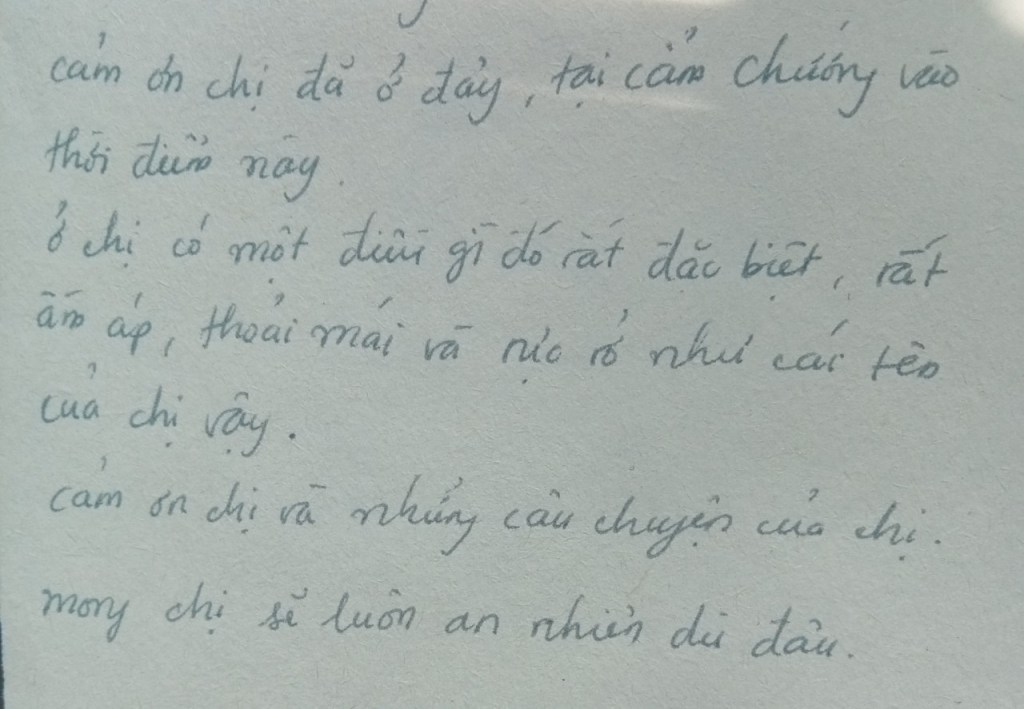 cảm ơn chị đã ở đây, tại cẩm chướng vào
thời điểm này.
ở chị có một điều gì đó rất đặc biệt, rất
ấm áp, thoải mái và rực rỡ như cái tên
của chị vậy.
cảm ơn chị và những câu chuyện của chị.
mong chị sẽ luôn an nhiên dù đâu.